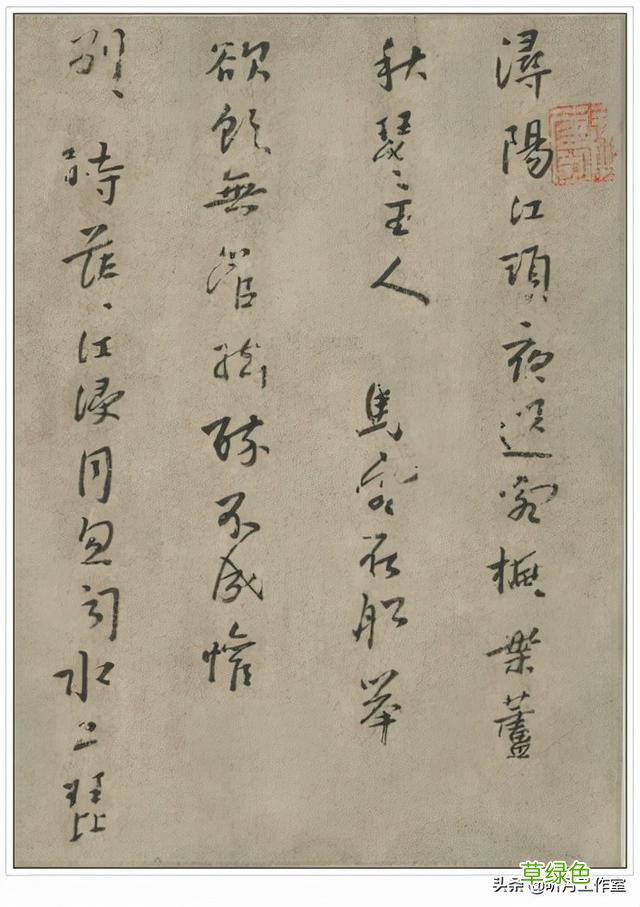 潯陽江頭夜送客楓葉蘆
秋瑟〻主人 馬客在船舉
欲飲無管絃醉不成懽
別〻時茫〻江浸月忽聞水上琵
草绿色
头条 @听月工作室